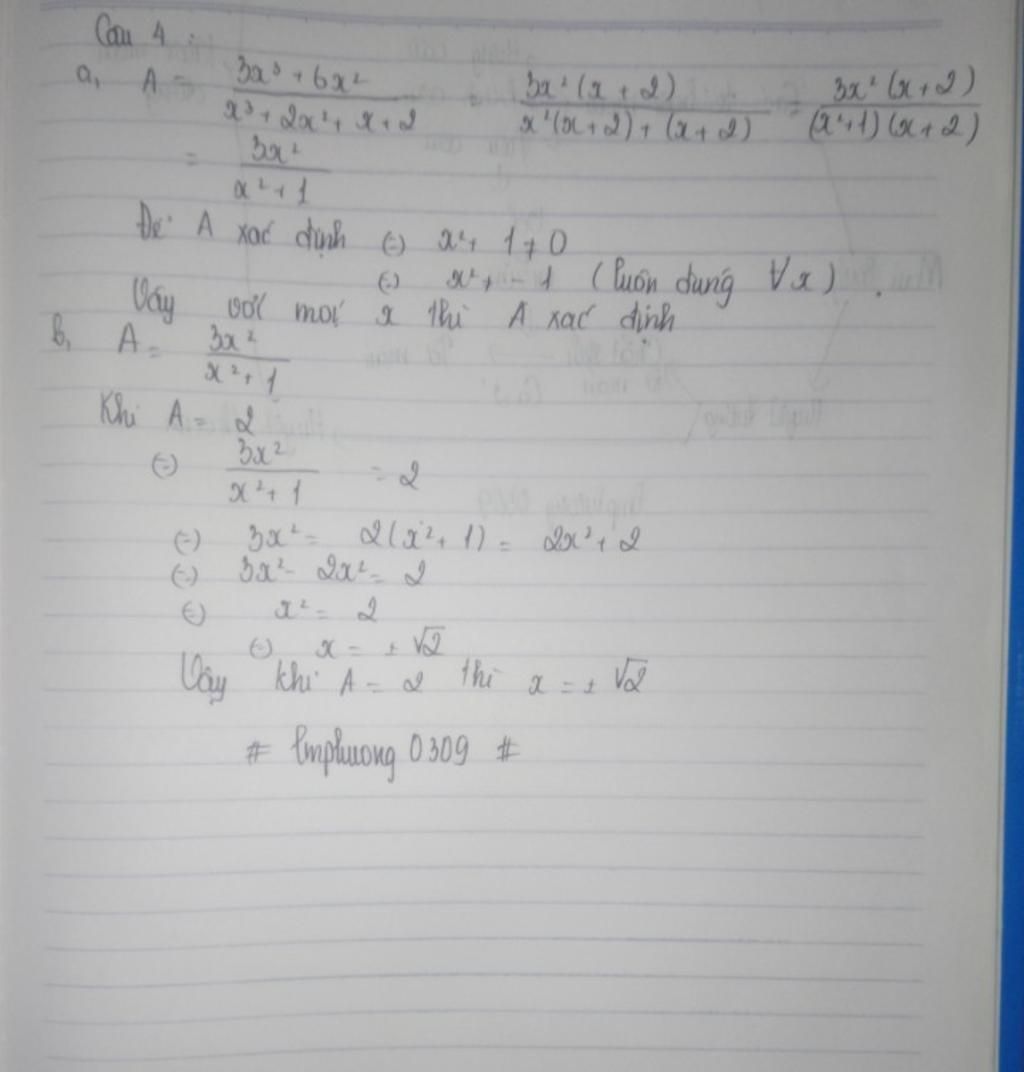 Câu 4 :
a, A = (3x³ + 6x²)/(x³ + 2x² + x + 2) = (3x²(x + 2))/(x²(x + 2) + (x + 2)) = (3x²(x + 2))/((x²+1)(x + 2))
= (3x²)/(x² + 1)
Để A xác định (=) x² + 1 ≠ 0
(=) x² ≠ -1 (luôn đúng ∀x) .
Vậy với mọi x thì A xác định
b, A = (3x²)/(x² + 1)
Khi A = 2
(=) (3x²)/(x² + 1) = 2
(=) 3x² = 2(x² + 1) = 2x² + 2
(=) 3x² - 2x² = 2
(=) x² = 2
(=) x = ± √2
Vậy khi A = 2 thì x = ± √2
# lmphuong 0309 #